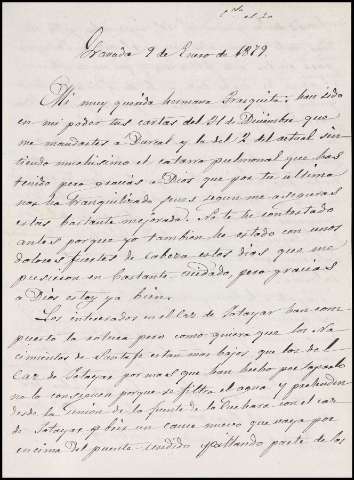 el 20
Granada 9 de Enero de 1879.
Mi muy querida hermana Frasquita: han sido
en mi poder tus cartas del 31 de Diciembre que
me mandastes a Durcal y la del 2 del actual sin-
tiendo muchisimo el catarro pulmonal que has
tenido pero gracias a Dios que por tu ultima
nos ha tranquilizado pues segun me aseguras
estas bastante mejorada. No te he contestado
antes porque yo tambien he estado con unos
dolores fuertes de cabeza estos dias que me
pusieron en bastante cuidado, pero gracias
a Dios estoy ya bien.
Los enterrados en el Caz de Tatayar han con-
puerto la solera pero como quiera que los Na-
cimientos de Santafe estan mas bajos que los del
Caz de Tatayar por mas que han hecho por taparlo
no lo consiguen porque se filtra el agua y pretenden
desde la union de la fuente de la Cuchara con el caz
de Tatayar abrir un cauce nuevo que vaya por
encima del puente hundido pillando parte de las